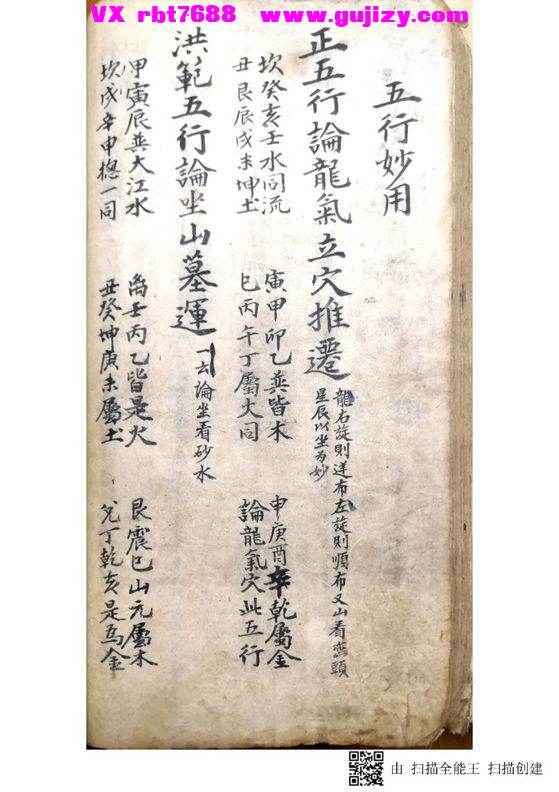 VX rbt7688 www.gujizy.com
五行妙用
正五行論龍氣立穴推遷
龍右旋則逆布左旋則順布又山看巒頭
星辰以坐为妙
坎癸亥壬水同流 寅甲卯乙巽皆木 申庚酉辛乾屬金
丑艮辰戌未坤土 巳丙午丁屬火同 論龍氣穴此五行
洪範五行論坐山墓運
一云論坐看砂水
甲寅辰巽大江水 离壬丙乙皆是火 艮震巳山元屬木
坎戌辛申揔一同 丑癸坤庚未屬土 兌丁乾亥是為金
由 扫描全能王 扫描创建